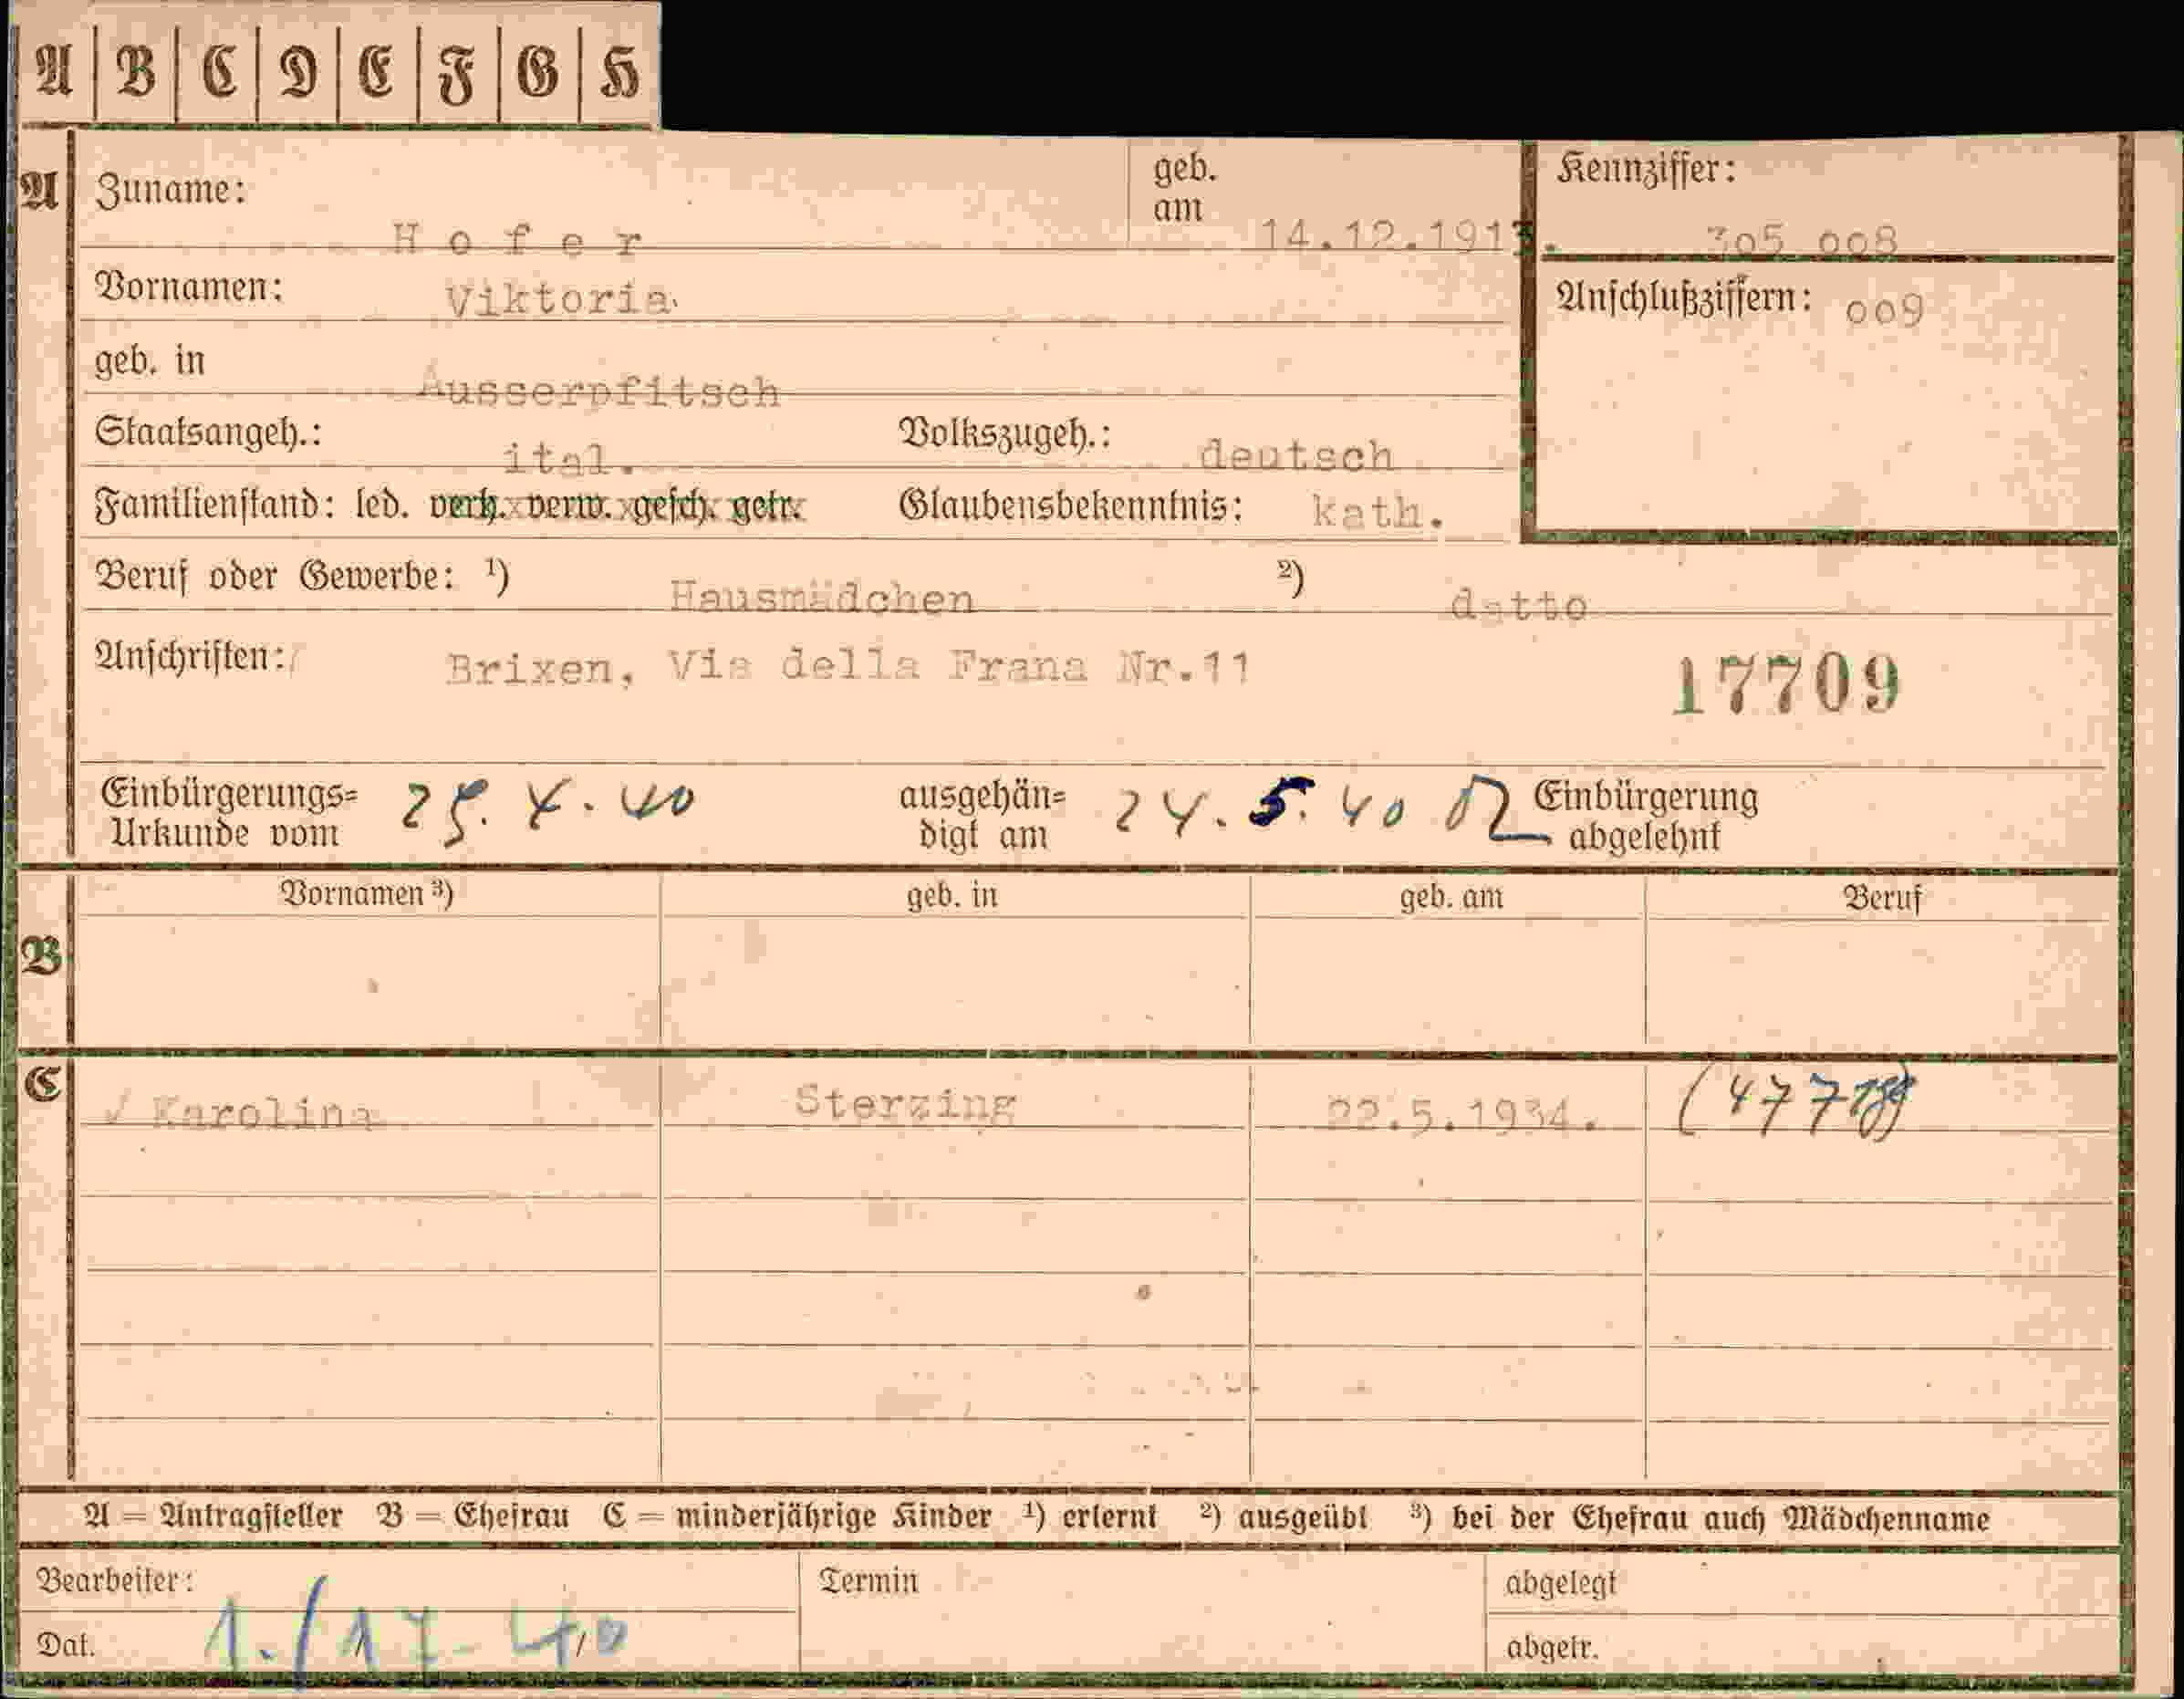 A B C D E F G H
A Zuname: Hofer geb. am 14.12.1913. Kennziffer: 305 008
Vornamen: Viktoria Anschlußziffern: 009
geb. in Ausserpfitsch
Staatsangeh.: ital. Volkszugeh.: deutsch
Familienstand: led. verh. verw. gesch. getr. Glaubensbekenntnis: kath.
Beruf oder Gewerbe: ¹) Hausmädchen ²) detto
Anschriften: Brixen, Via della Frana Nr.11 17709
Einbürgerungs= ausgehän= Einbürgerung
Urkunde vom digt am 24.5.40 abgelehnt
Vornamen ³) geb. in geb. am Beruf
B
C
√ Karolina Sterzing 22.5.1934.
A = Antragsteller B = Ehefrau C = minderjährige Kinder ¹) erlernt ²) ausgeübt ³) bei der Ehefrau auch Mädchenname
Bearbeiter: Termin abgelegt
Dat. abgetr.